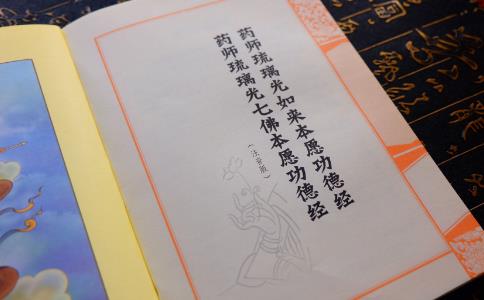 药师琉璃光如来本愿功德经
药师琉璃光七佛本愿功德经
（注音版）